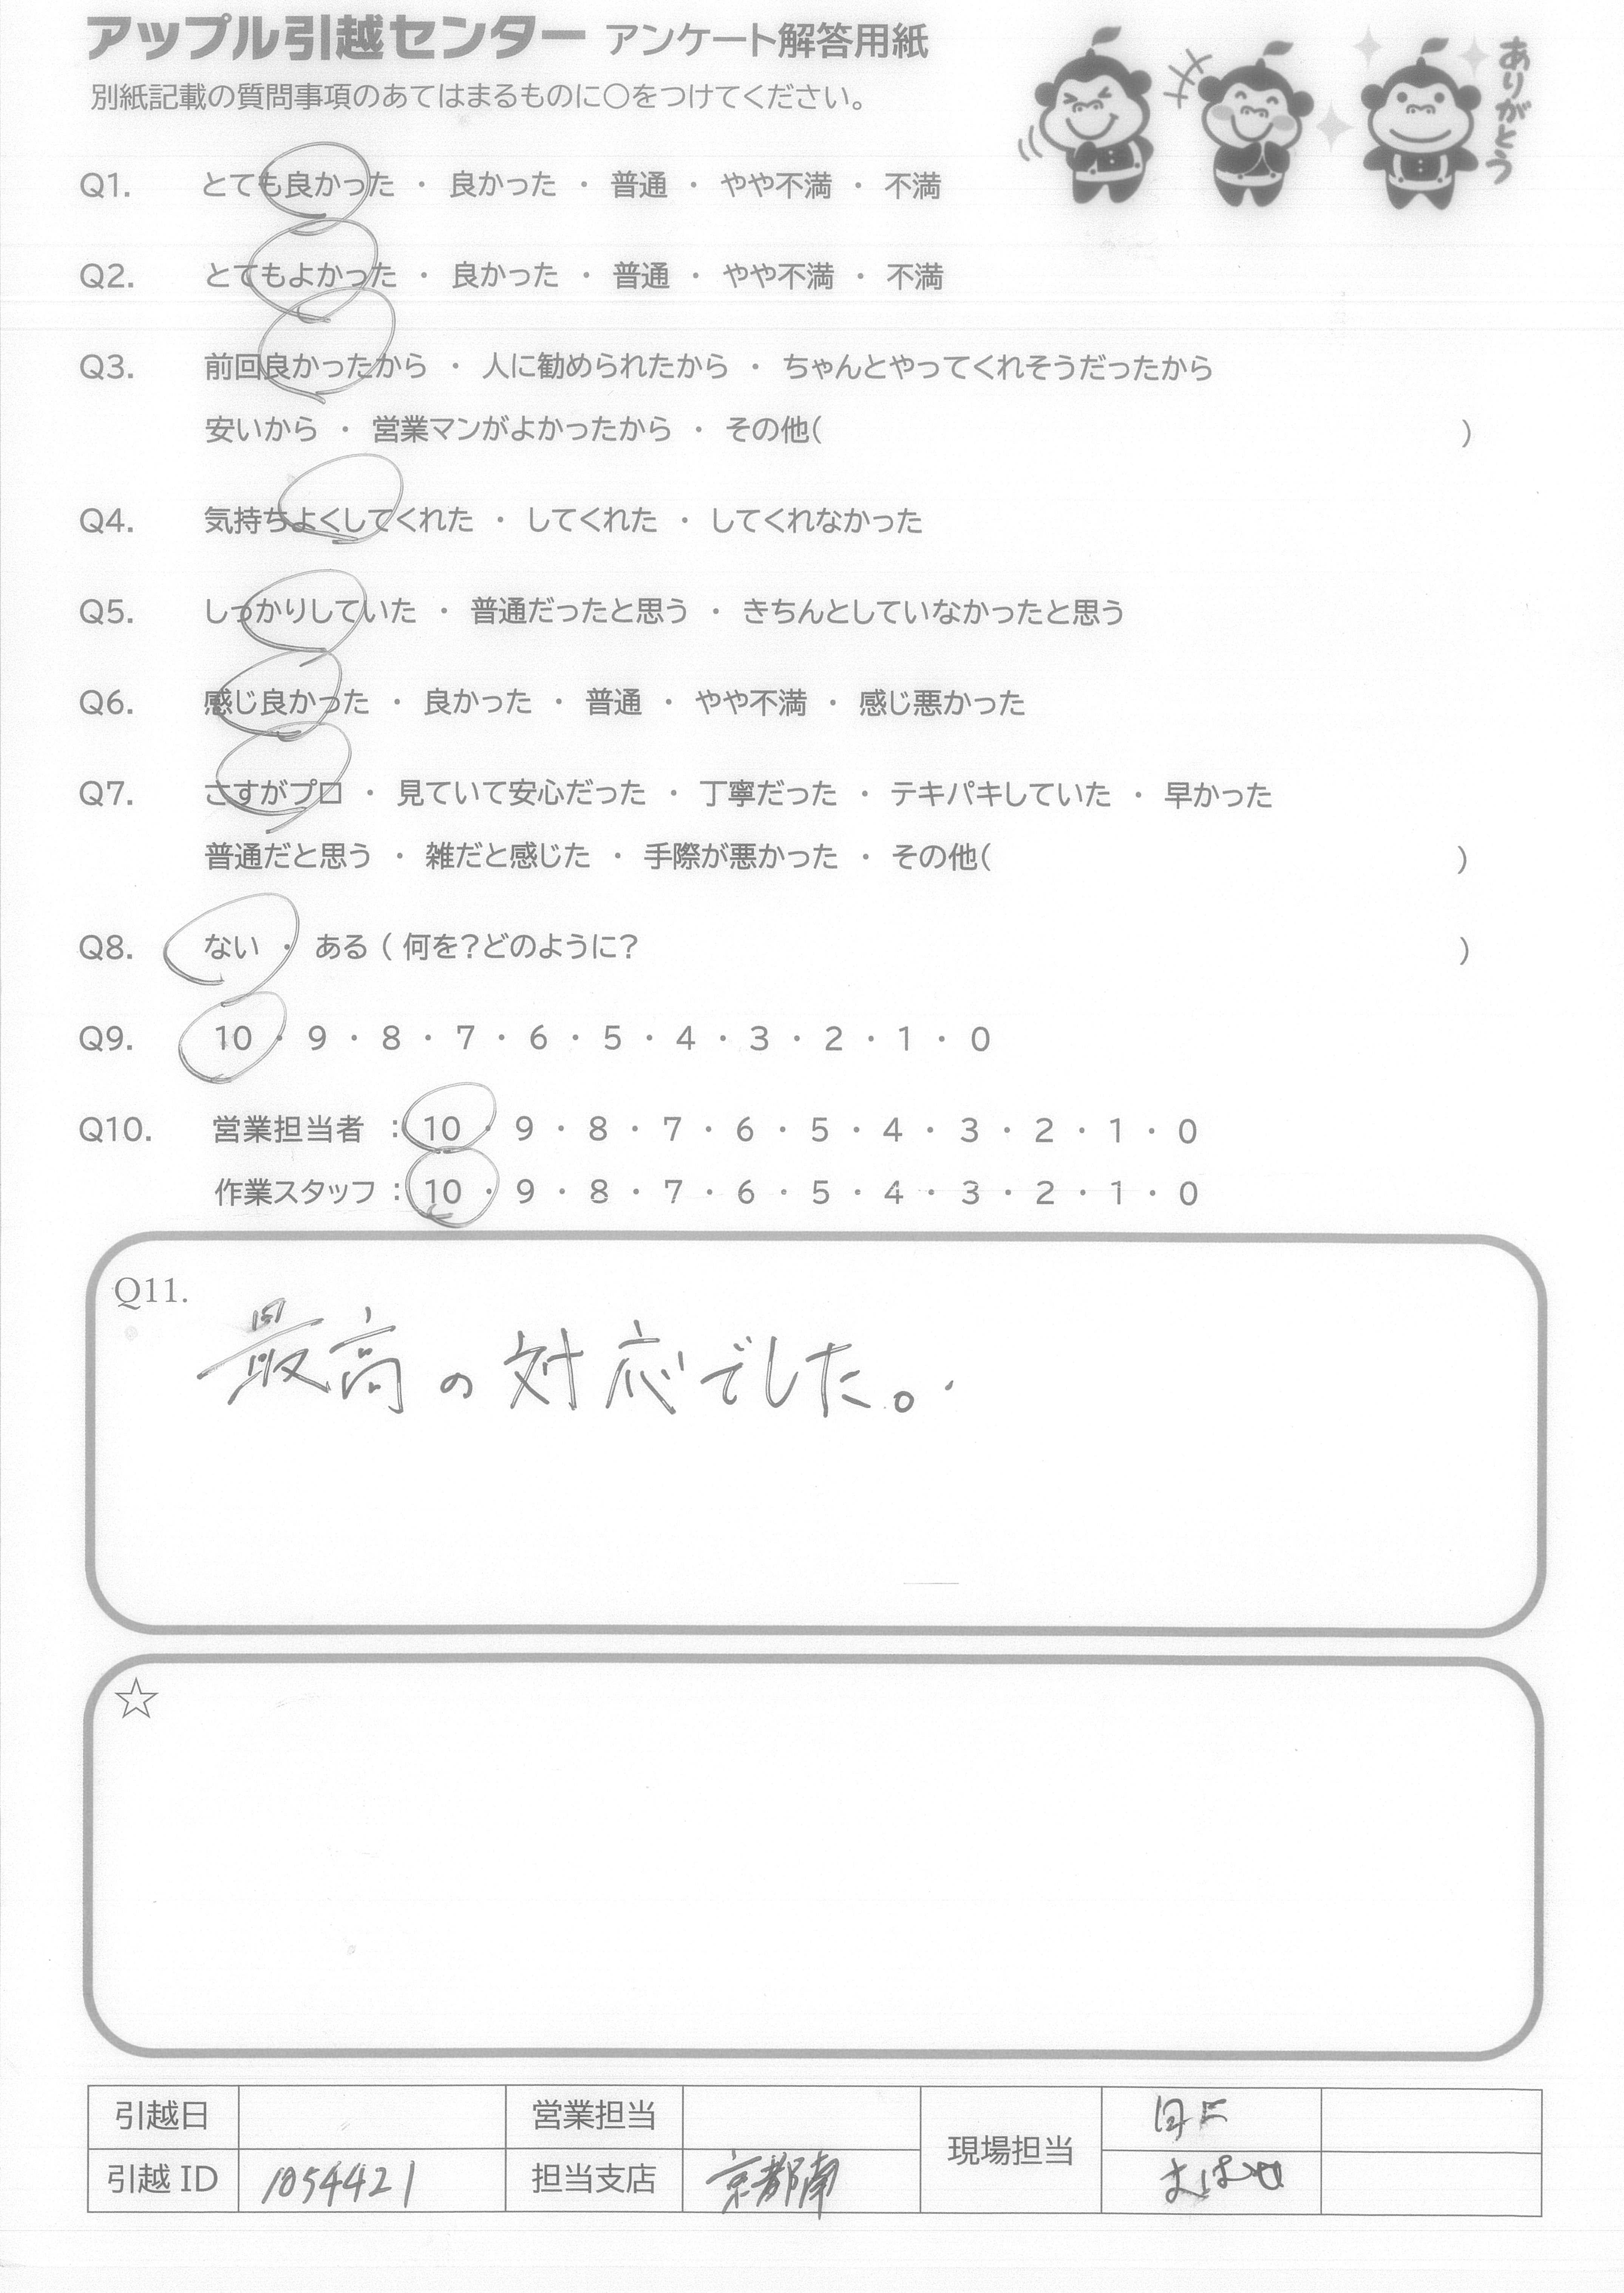 アップル引越センター アンケート解答用紙
別紙記載の質問事項のあてはまるものに○をつけてください。
ありがとう
Q1. とても良かった ・ 良かった ・ 普通 ・ やや不満 ・ 不満
Q2. とてもよかった ・ 良かった ・ 普通 ・ やや不満 ・ 不満
Q3. 前回良かったから ・ 人に勧められたから ・ ちゃんとやってくれそうだったから
安いから ・ 営業マンがよかったから ・ その他( )
Q4. 気持ちよくしてくれた ・ してくれた ・ してくれなかった
Q5. しっかりしていた ・ 普通だったと思う ・ きちんとしていなかったと思う
Q6. 感じ良かった ・ 良かった ・ 普通 ・ やや不満 ・ 感じ悪かった
Q7. さすがプロ ・ 見ていて安心だった ・ 丁寧だった ・ テキパキしていた ・ 早かった
普通だと思う ・ 雑だと感じた ・ 手際が悪かった ・ その他( )
Q8. ない ・ ある ( 何を?どのように? )
Q9. 10 ・ 9 ・ 8 ・ 7 ・ 6 ・ 5 ・ 4 ・ 3 ・ 2 ・ 1 ・ 0
Q10. 営業担当者 : 10 ・ 9 ・ 8 ・ 7 ・ 6 ・ 5 ・ 4 ・ 3 ・ 2 ・ 1 ・ 0
作業スタッフ : 10 ・ 9 ・ 8 ・ 7 ・ 6 ・ 5 ・ 4 ・ 3 ・ 2 ・ 1 ・ 0
Q11.
最高の対応でした。
☆
引越日 営業担当 現場担当
引越 ID 1054421 担当支店 京都南